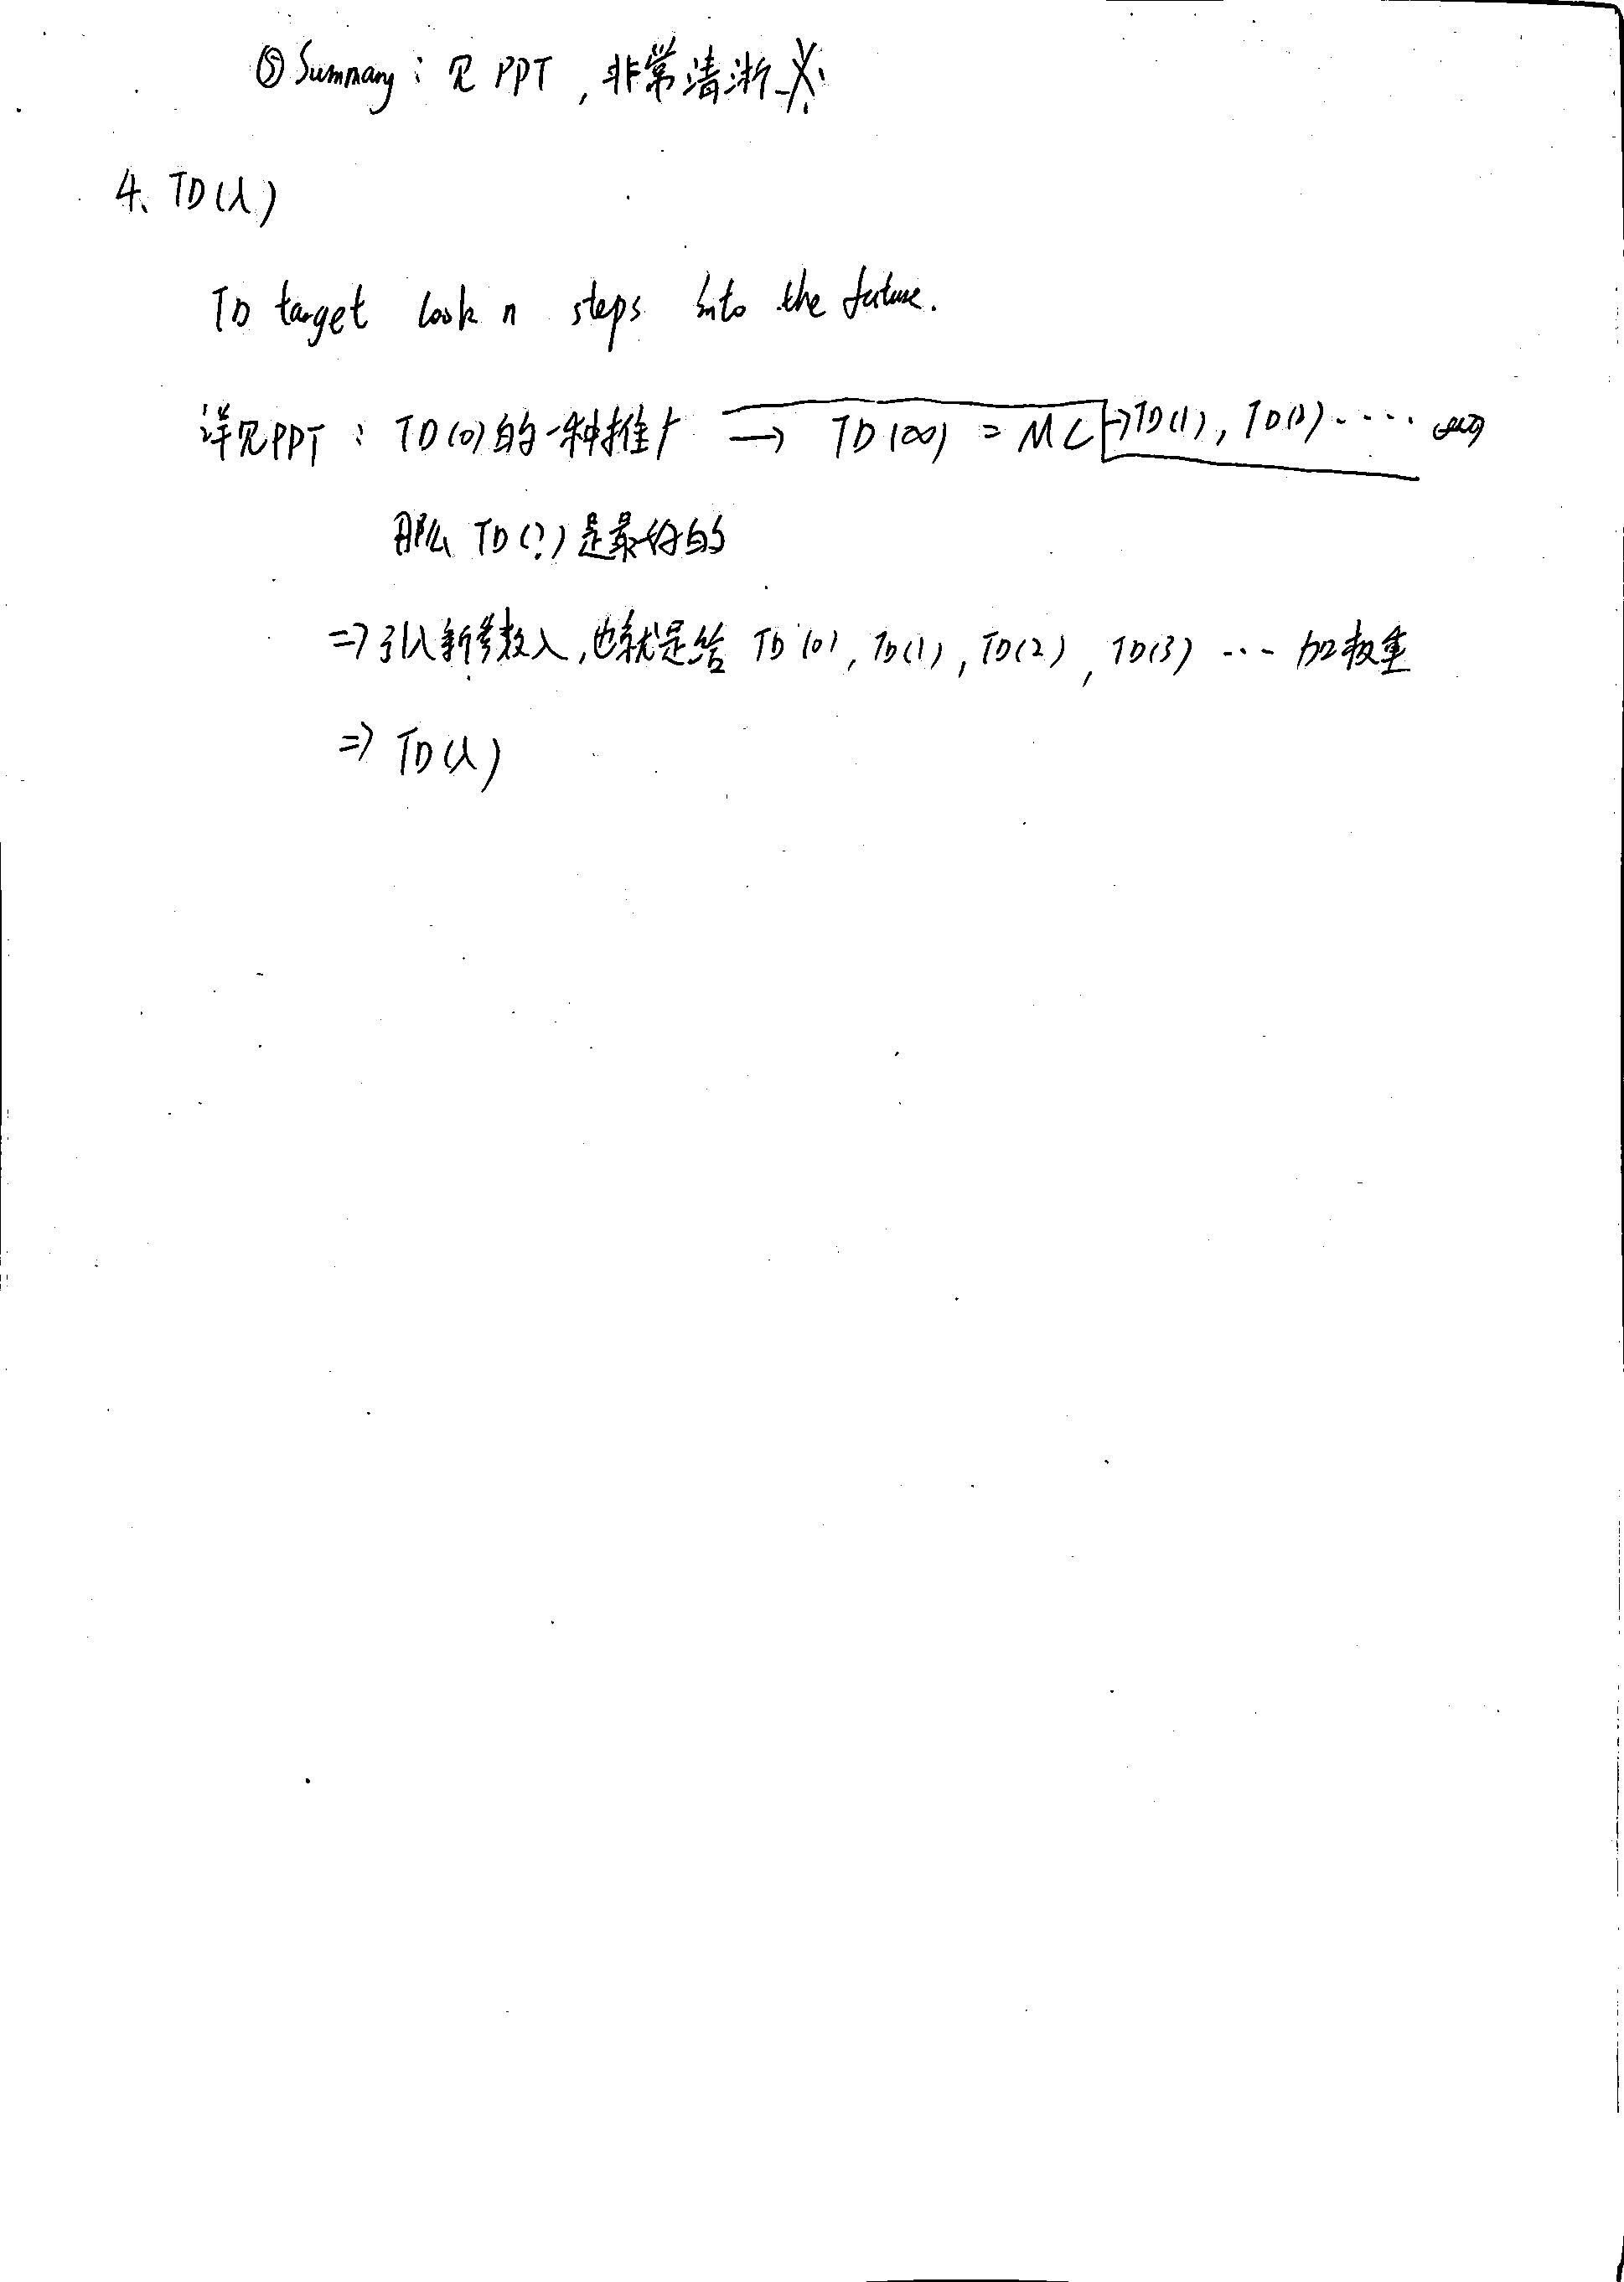 ⑤ Summary：见 PPT，非常清淅 ※
4、TD(λ)
TD target look n steps into the future.
详见PPT：TD(0)的一种推广 → TD(∞) = MC → TD(1), TD(2) ·····
那么 TD(?) 是最好的
⇒ 引入新参数λ，也就是给 TD(0), TD(1), TD(2), TD(3) ··· 加权重
⇒ TD(λ)